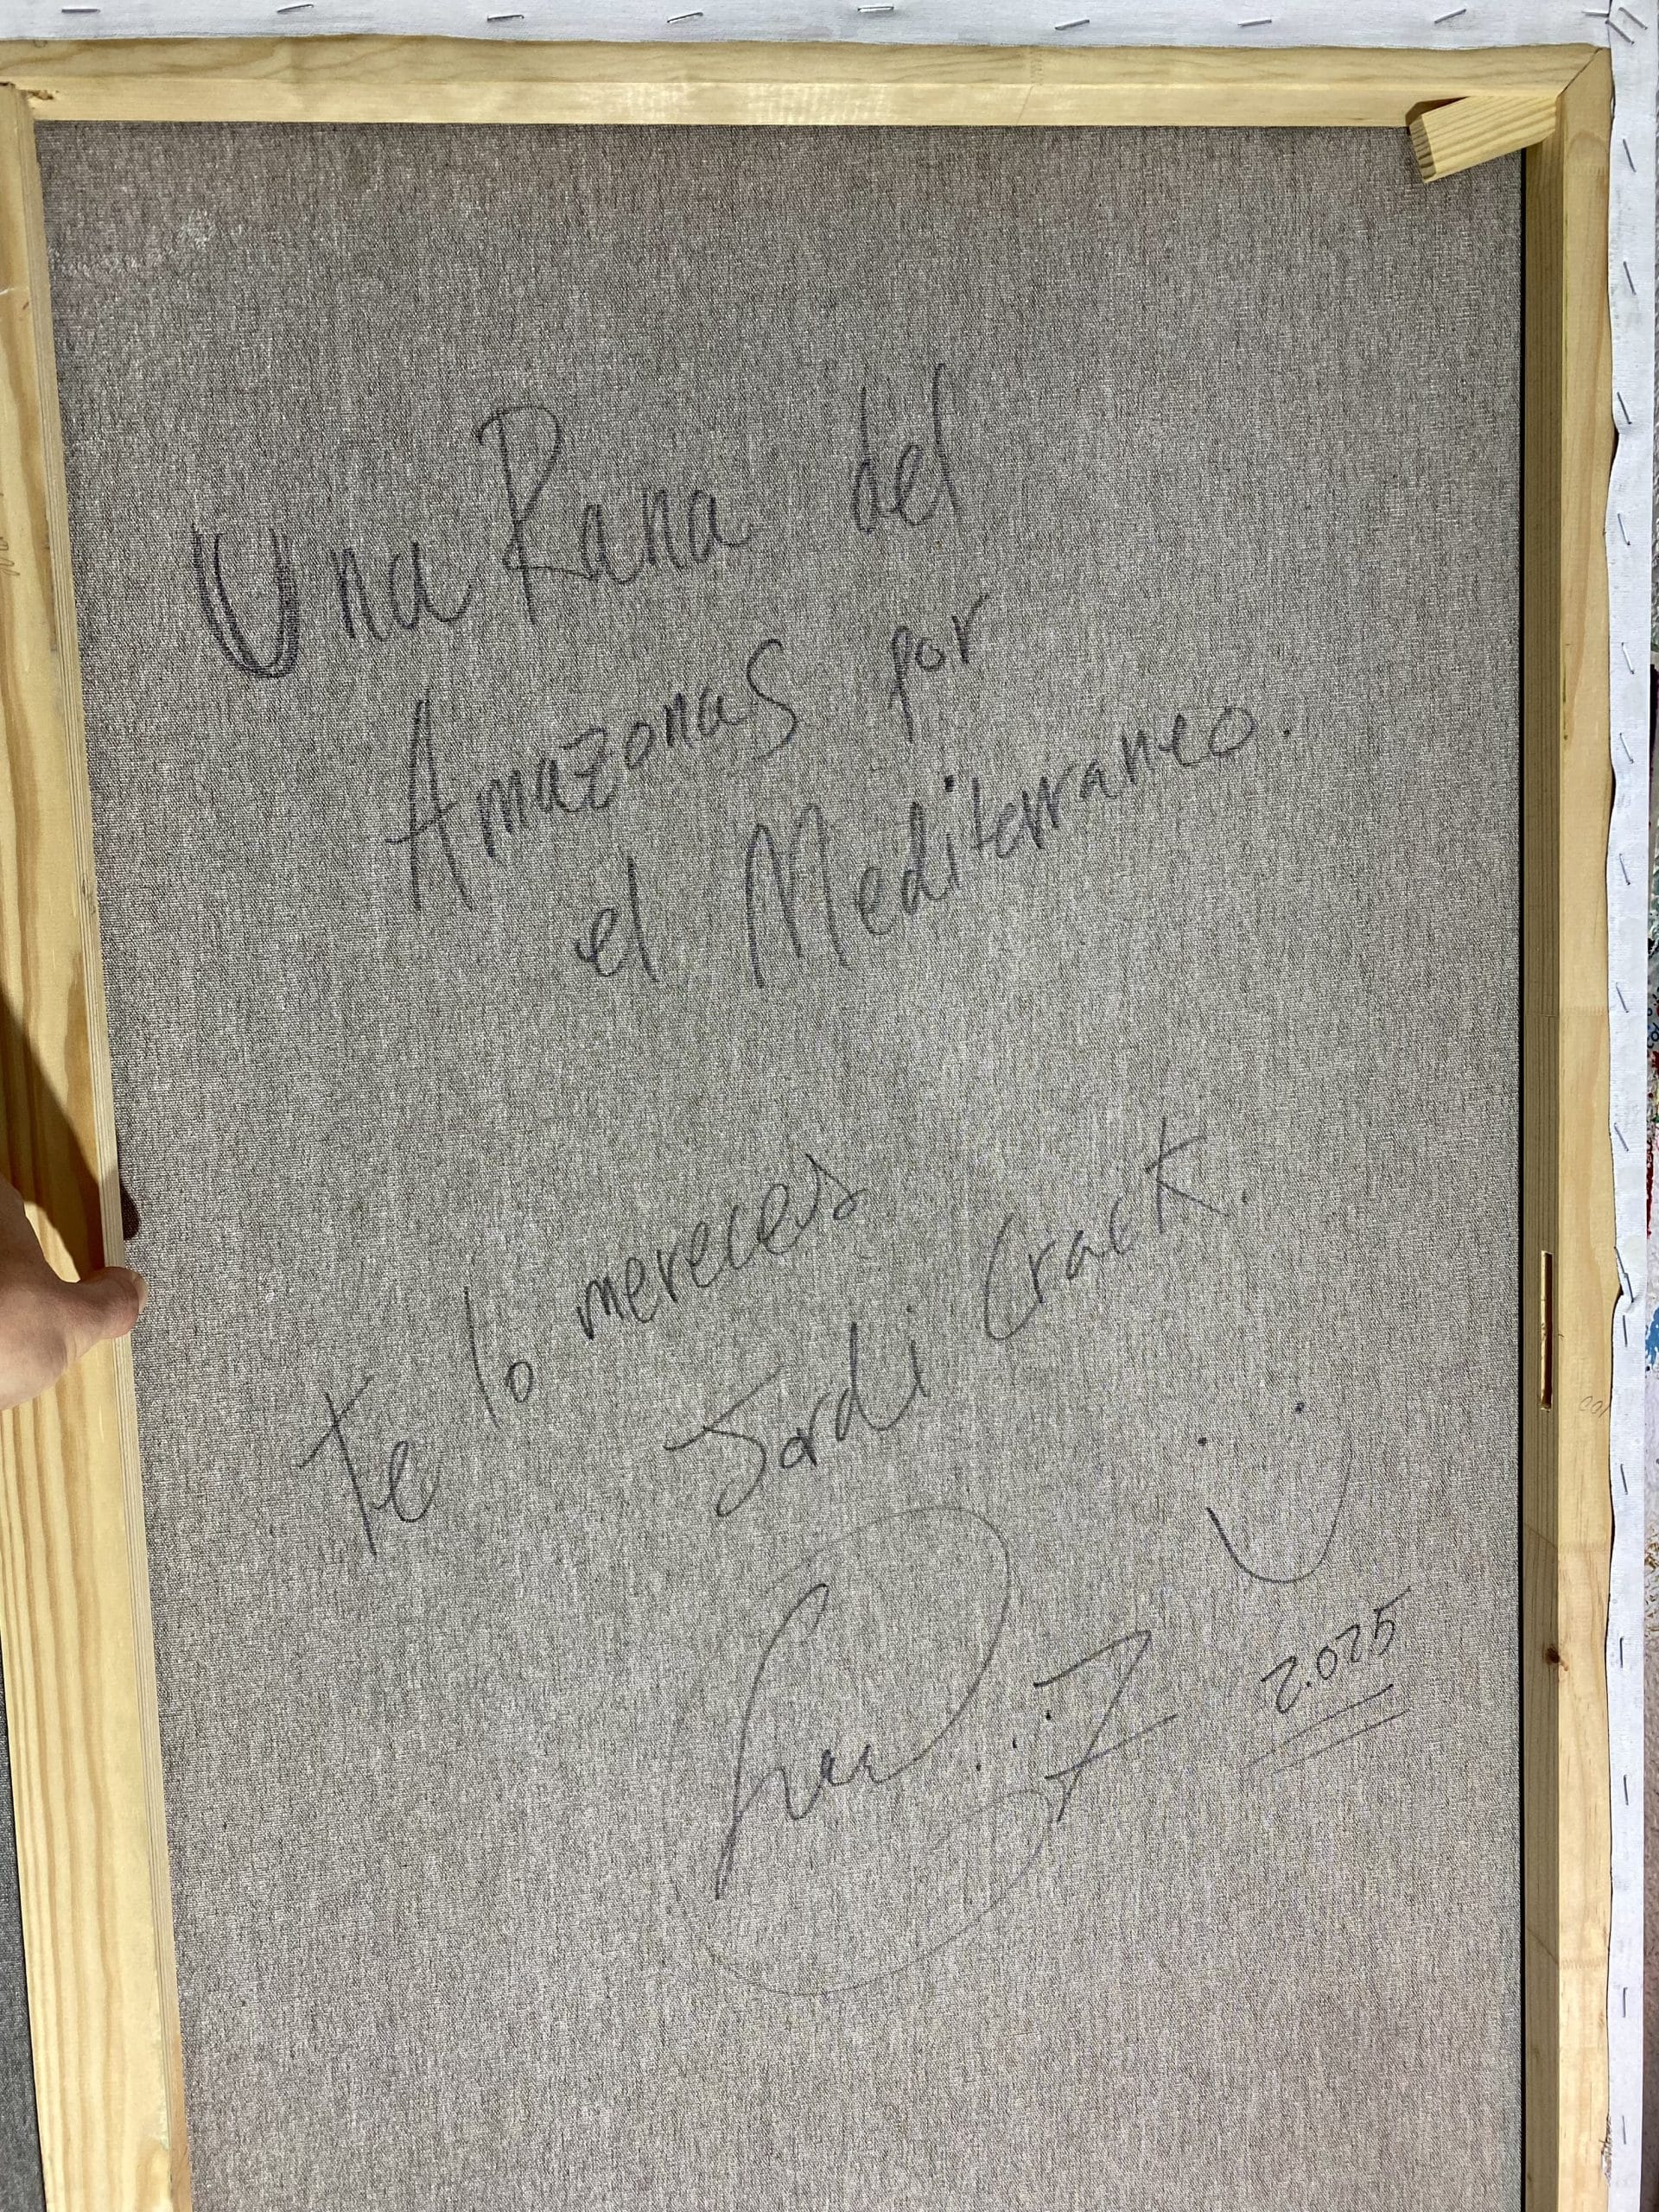 Una Rana del
Amazonas por
el Mediterraneo.
te lo mereces
Jordi Crack.
2.025